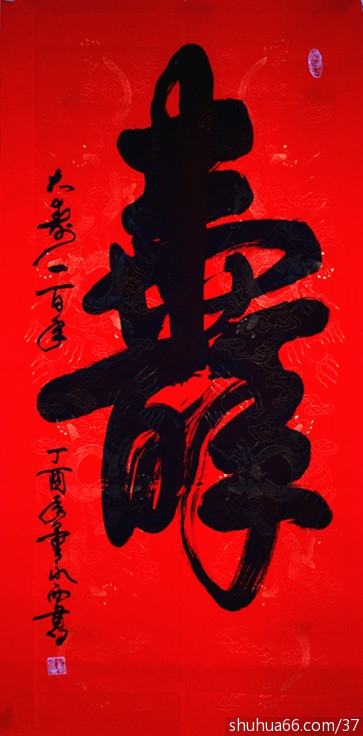 壽
大壽一百年
丁酉年
shuhua66.com/37